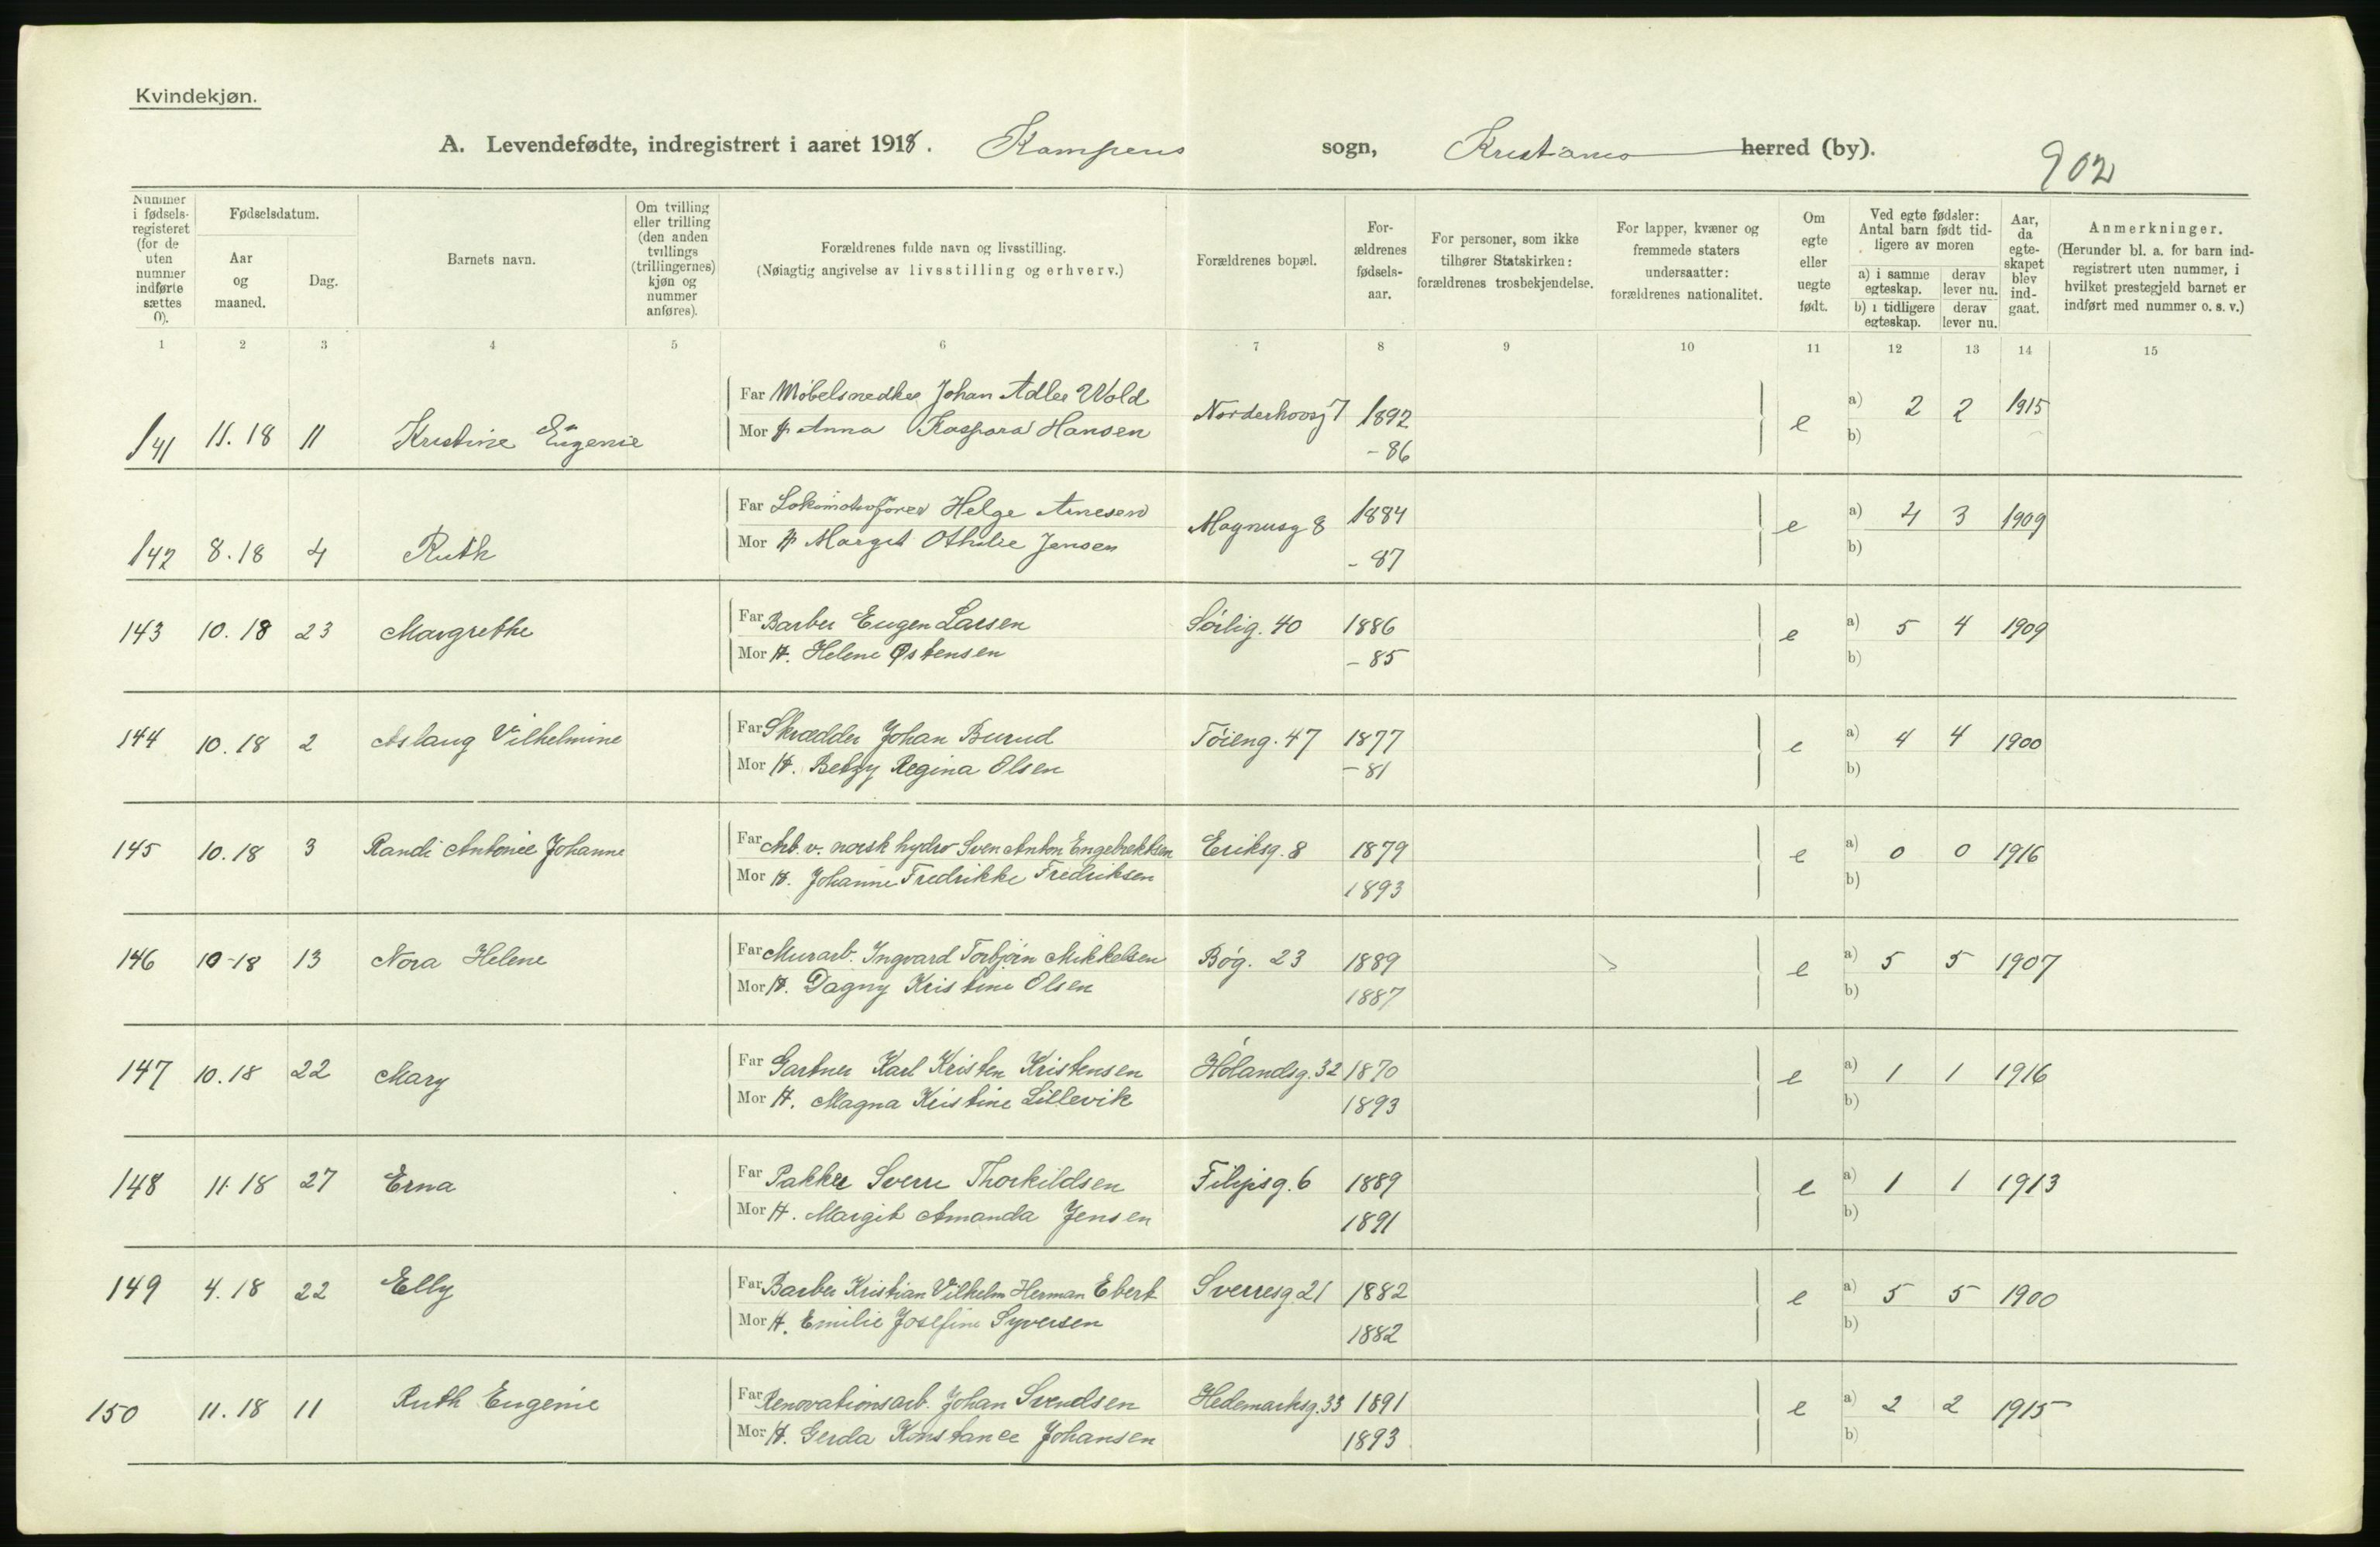 Kvindekjøn.
A. Levendefødte, indregistrert i aaret 1918. Kampens sogn, Kristiania herred (by).
902
Nummer i fødsels-registeret (for de uten nummer indførte sættes 0).
Fødselsdatum.
Aar og maaned.
Dag.
Barnets navn.
Om tvilling eller trilling (den anden tvillings (trillingernes) kjøn og nummer anføres).
Forældrenes fulde navn og livsstilling.
(Nøiagtig angivelse av livsstilling og erhverv.)
Forældrenes bopæl.
For-ældrenes fødsels-aar.
For personer, som ikke tilhører Statskirken: forældrenes trosbekjendelse.
For lapper, kvæner og fremmede staters undersaatter: forældrenes nationalitet.
Om egte eller uegte født.
Ved egte fødsler: Antal barn født tid-ligere av moren
a) i samme egteskap.
derav lever nu.
b) i tidligere egteskap.
derav lever nu.
Aar, da egte-skapet blev ind-gaat.
Anmerkninger.
(Herunder bl. a. for barn ind-registrert uten nummer, i hvilket prestegjeld barnet er indført med nummer o. s. v.)
1 2 3 4 5 6 7 8 9 10 11 12 13 14 15
141 11.18 11 Kristine Eugenie Far Møbelsnedker Johan Adler Wold Norderhovsg 7 1892 e a) 2 2 1915
Mor H Anna Kaspara Hansen - 86 b)
142 8.18 4 Ruth Far Lokomotivfører Helge Arnesen Magnusg 8 1884 e a) 4 3 1909
Mor H Margit Othilie Jensen - 87 b)
143 10.18 23 Margrethe Far Barber Eugen Larsen Sörlig. 40 1886 e a) 5 4 1909
Mor H. Helene Østensen - 85 b)
144 10.18 2 Aslaug Vilhelmine Far Skrædder Johan Burud Töieng. 47 1877 e a) 4 4 1900
Mor H. Betzy Regina Olsen - 81 b)
145 10.18 3 Randi Antonie Johanne Far Arb. v. norsk hydro Sven Anton Engebrektsen Eriksg. 8 1879 e a) 0 0 1916
Mor H. Johanne Fredrikke Fredriksen 1893 b)
146 10-18 13 Nora Helene Far Murarb. Ingvard Torbjörn Mikkelsen Bøg. 23 1889 e a) 5 5 1907
Mor H. Dagny Kristine Olsen 1887 b)
147 10.18 22 Mary Far Gartner Karl Kristen Kristensen Hölandsg. 32 1870 e a) 1 1 1916
Mor H. Magna Kristine Lillevik 1893 b)
148 11.18 27 Erna Far Pakker Sverre Thorkildsen Filipsg. 6 1889 e a) 1 1 1913
Mor H. Margit Amanda Jensen 1891 b)
149 4.18 22 Elly Far Barber Kristian Vilhelm Herman Ebert Sverresg. 21 1882 e a) 5 5 1900
Mor H. Emilie Josefine Syversen 1882 b)
150 11.18 11 Ruth Eugenie Far Renovationsarb. Johan Svendsen Hedemarksg. 33 1891 e a) 2 2 1915
Mor H. Gerda Konstance Johansen 1893 b)